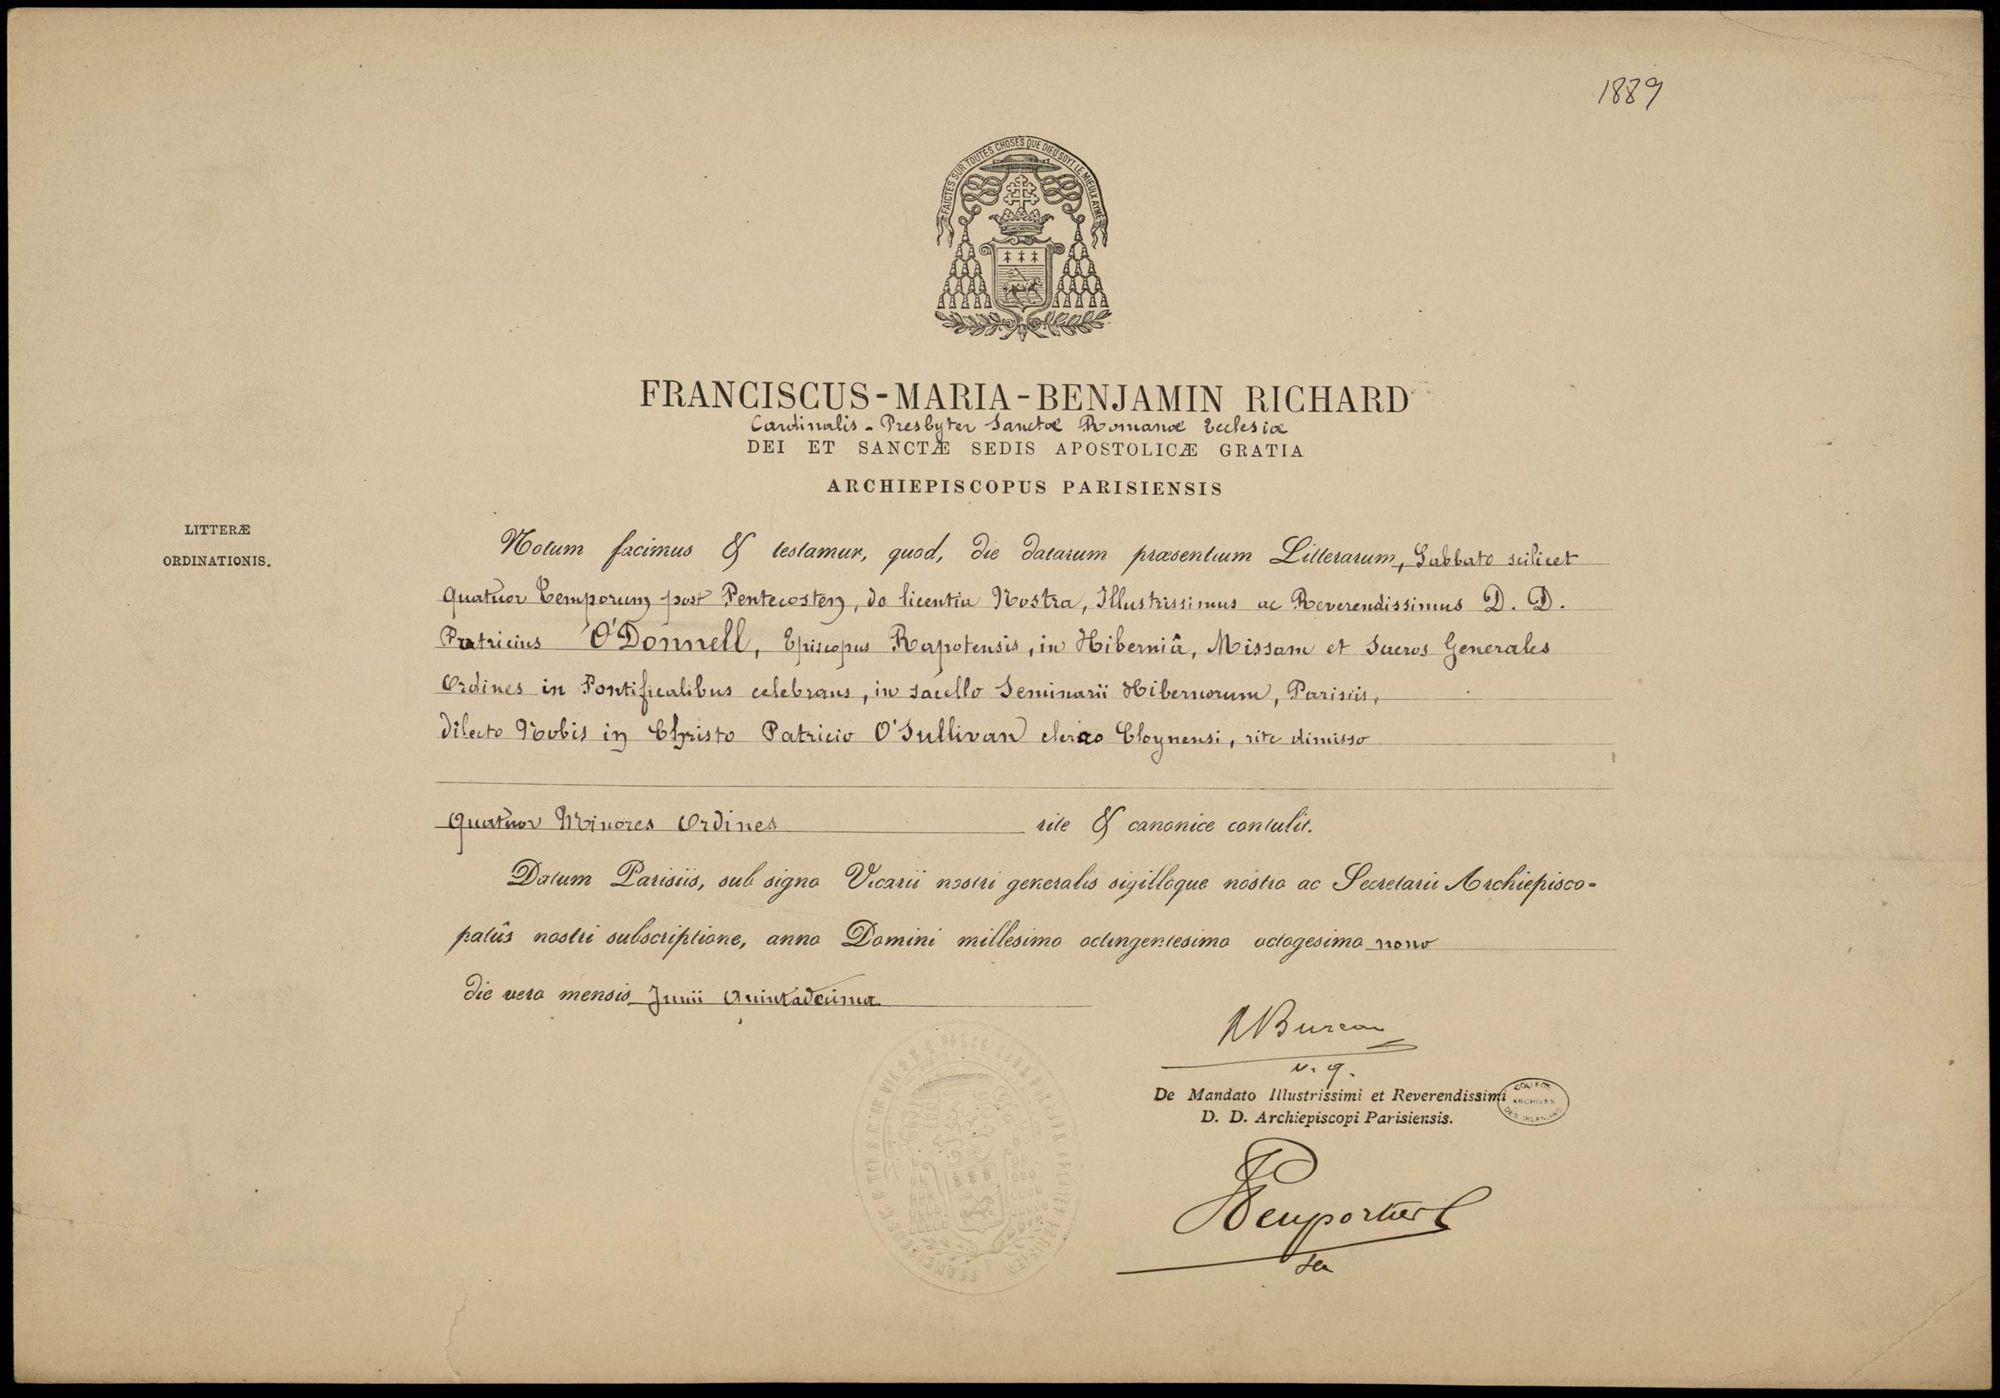 1889
FAICTES SUR TOUTES CHOSES QUE DIEU SOYT LE MIEULX AYMÉ
FRANCISCUS-MARIA-BENJAMIN RICHARD
Cardinalis-Presbyter Sanctæ Romanæ Ecclesiæ
DEI ET SANCTÆ SEDIS APOSTOLICÆ GRATIA
ARCHIEPISCOPUS PARISIENSIS
LITTERÆ
ORDINATIONIS.
Notum facimus & testamur, quod, die datarum præsentium Litterarum, Sabbato scilicet
Quatuor Temporum post Pentecosten, de licentia Nostra, Illustrissimus ac Reverendissimus D. D.
Patricius O'Donnell, Episcopus Rapotensis, in Hiberniâ, Missam et Sacros Generales
Ordines in Pontificalibus celebrans, in sacello Seminarii Hibernorum, Parisiis,
dilecto Nobis in Christo Patricio O'Sullivan clerico Cloynensi, rite dimisso
Quatuor Minores Ordines rite & canonice contulit.
Datum Parisiis, sub signo Vicarii nostri generalis sigilloque nostro ac Secretarii Archiepisco-
patûs nostri subscriptione, anno Domini millesimo octingentesimo octogesimo nono
die vero mensis Junii Quintadecima
Bureau
v. g.
De Mandato Illustrissimi et Reverendissimi
D. D. Archiepiscopi Parisiensis.
COLLEGE
ARCHIVES
DES IRLANDAIS